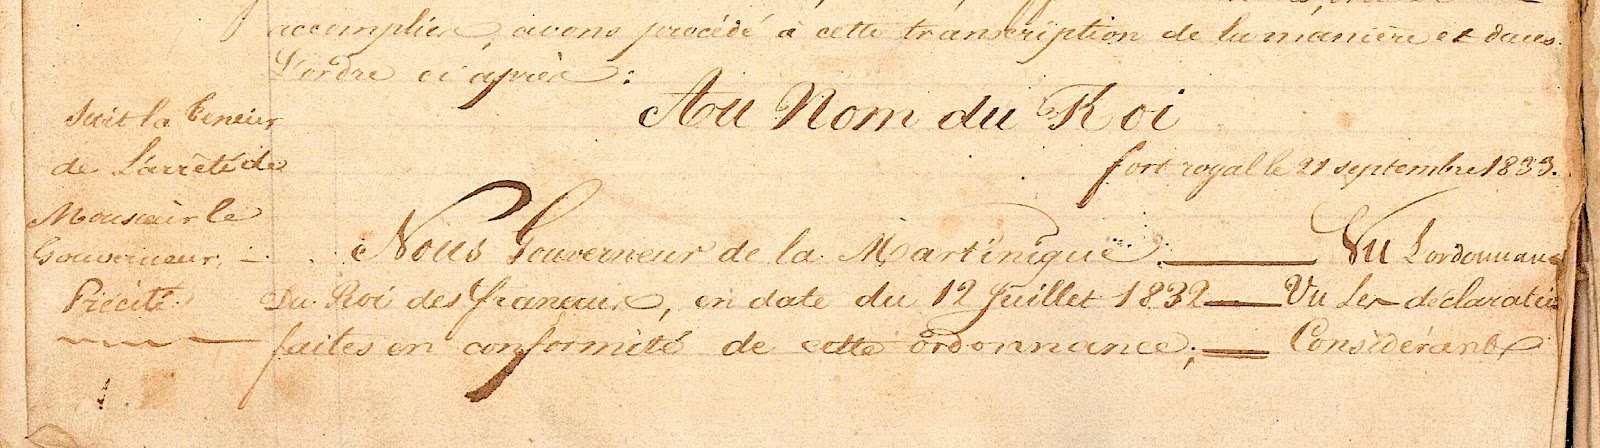 accomplies, avons procédé à cette transcription de la manière et dans
L'ordre ci après :
Au Nom du Roi
fort royal le 21 septembre 1833.
Suit la teneur
de L'arrêté de
Monsieur le
Gouverneur, –
Précité.
Nous Gouverneur de la Martinique. — Vu L'ordonnance
Du Roi des français, en date du 12 Juillet 1832 — Vu Les déclaration
faites en conformité de cette ordonnance; — Considérant